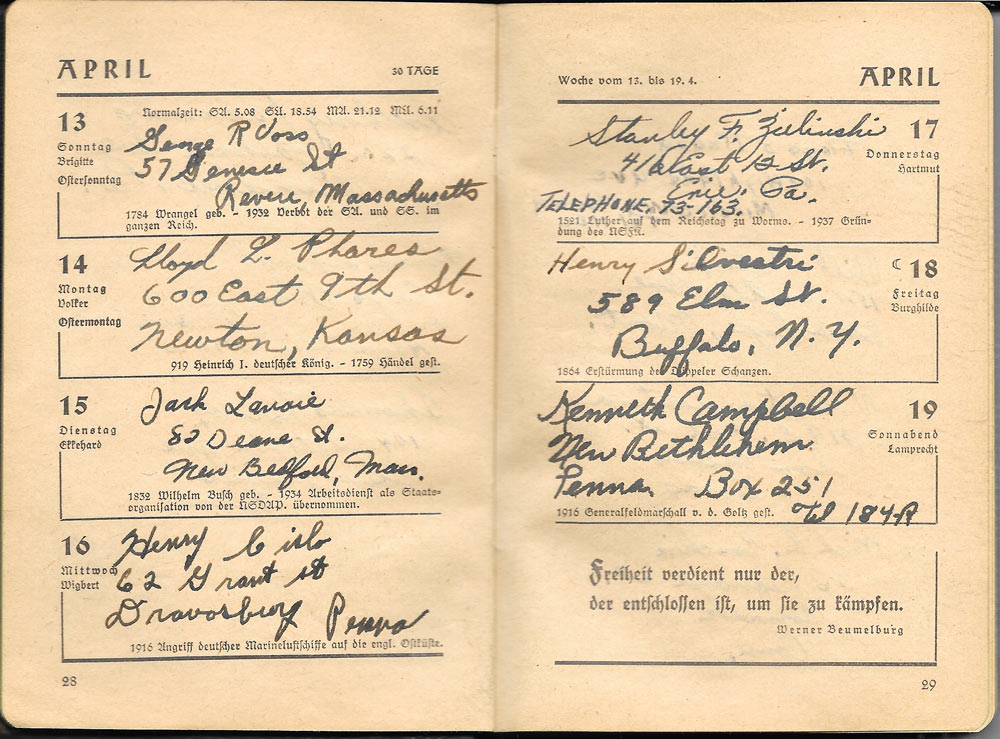 APRIL
30 TAGE
Normalzeit: SA. 5.08 SU. 18.54 MA. 21.12 MU. 6.11
13
Sonntag
Brigitte
Ostersonntag
George R Voss
57 Genesee St
Revere, Massachusetts
1784 Wrangel geb. - 1932 Verbot der SA. und SS. im
ganzen Reich.
14
Montag
Volker
Ostermontag
Lloyd L. Phares
600 East 9th St.
Newton, Kansas
919 Heinrich I. deutscher König. - 1759 Händel gest.
15
Dienstag
Ekkehard
Jack Lavoie
82 Deane St.
New Bedford, Mass.
1832 Wilhelm Busch geb. - 1934 Arbeitsdienst als Staats-
organisation von der NSDAP. übernommen.
16
Mittwoch
Wigbert
Henry Cislo
62 Grant St
Dravosburg Penna
1916 Angriff deutscher Marineluftschiffe auf die engl. Ostküste.
28
Woche vom 13. bis 19. 4.
APRIL
17
Donnerstag
Hartmut
Stanley F. Zielinski
East 12 St.
Erie. Pa.
TELEPHONE. 73-163.
1521 Luther auf dem Reichstag zu Worms. - 1937 Grün-
dung des NSFK.
18
Freitag
Burghilde
Henry Silvestri
589 Elm St.
Buffalo, N. Y.
1864 Erstürmung der Düppeler Schanzen.
19
Sonnabend
Lamprecht
Kenneth Campbell
New Bethlehem
Penna. Box 251
1916 Generalfeldmarschall v. d. Goltz gest. Tel 184R
Freiheit verdient nur der,
der entschlossen ist, um sie zu kämpfen.
Werner Beumelburg
29